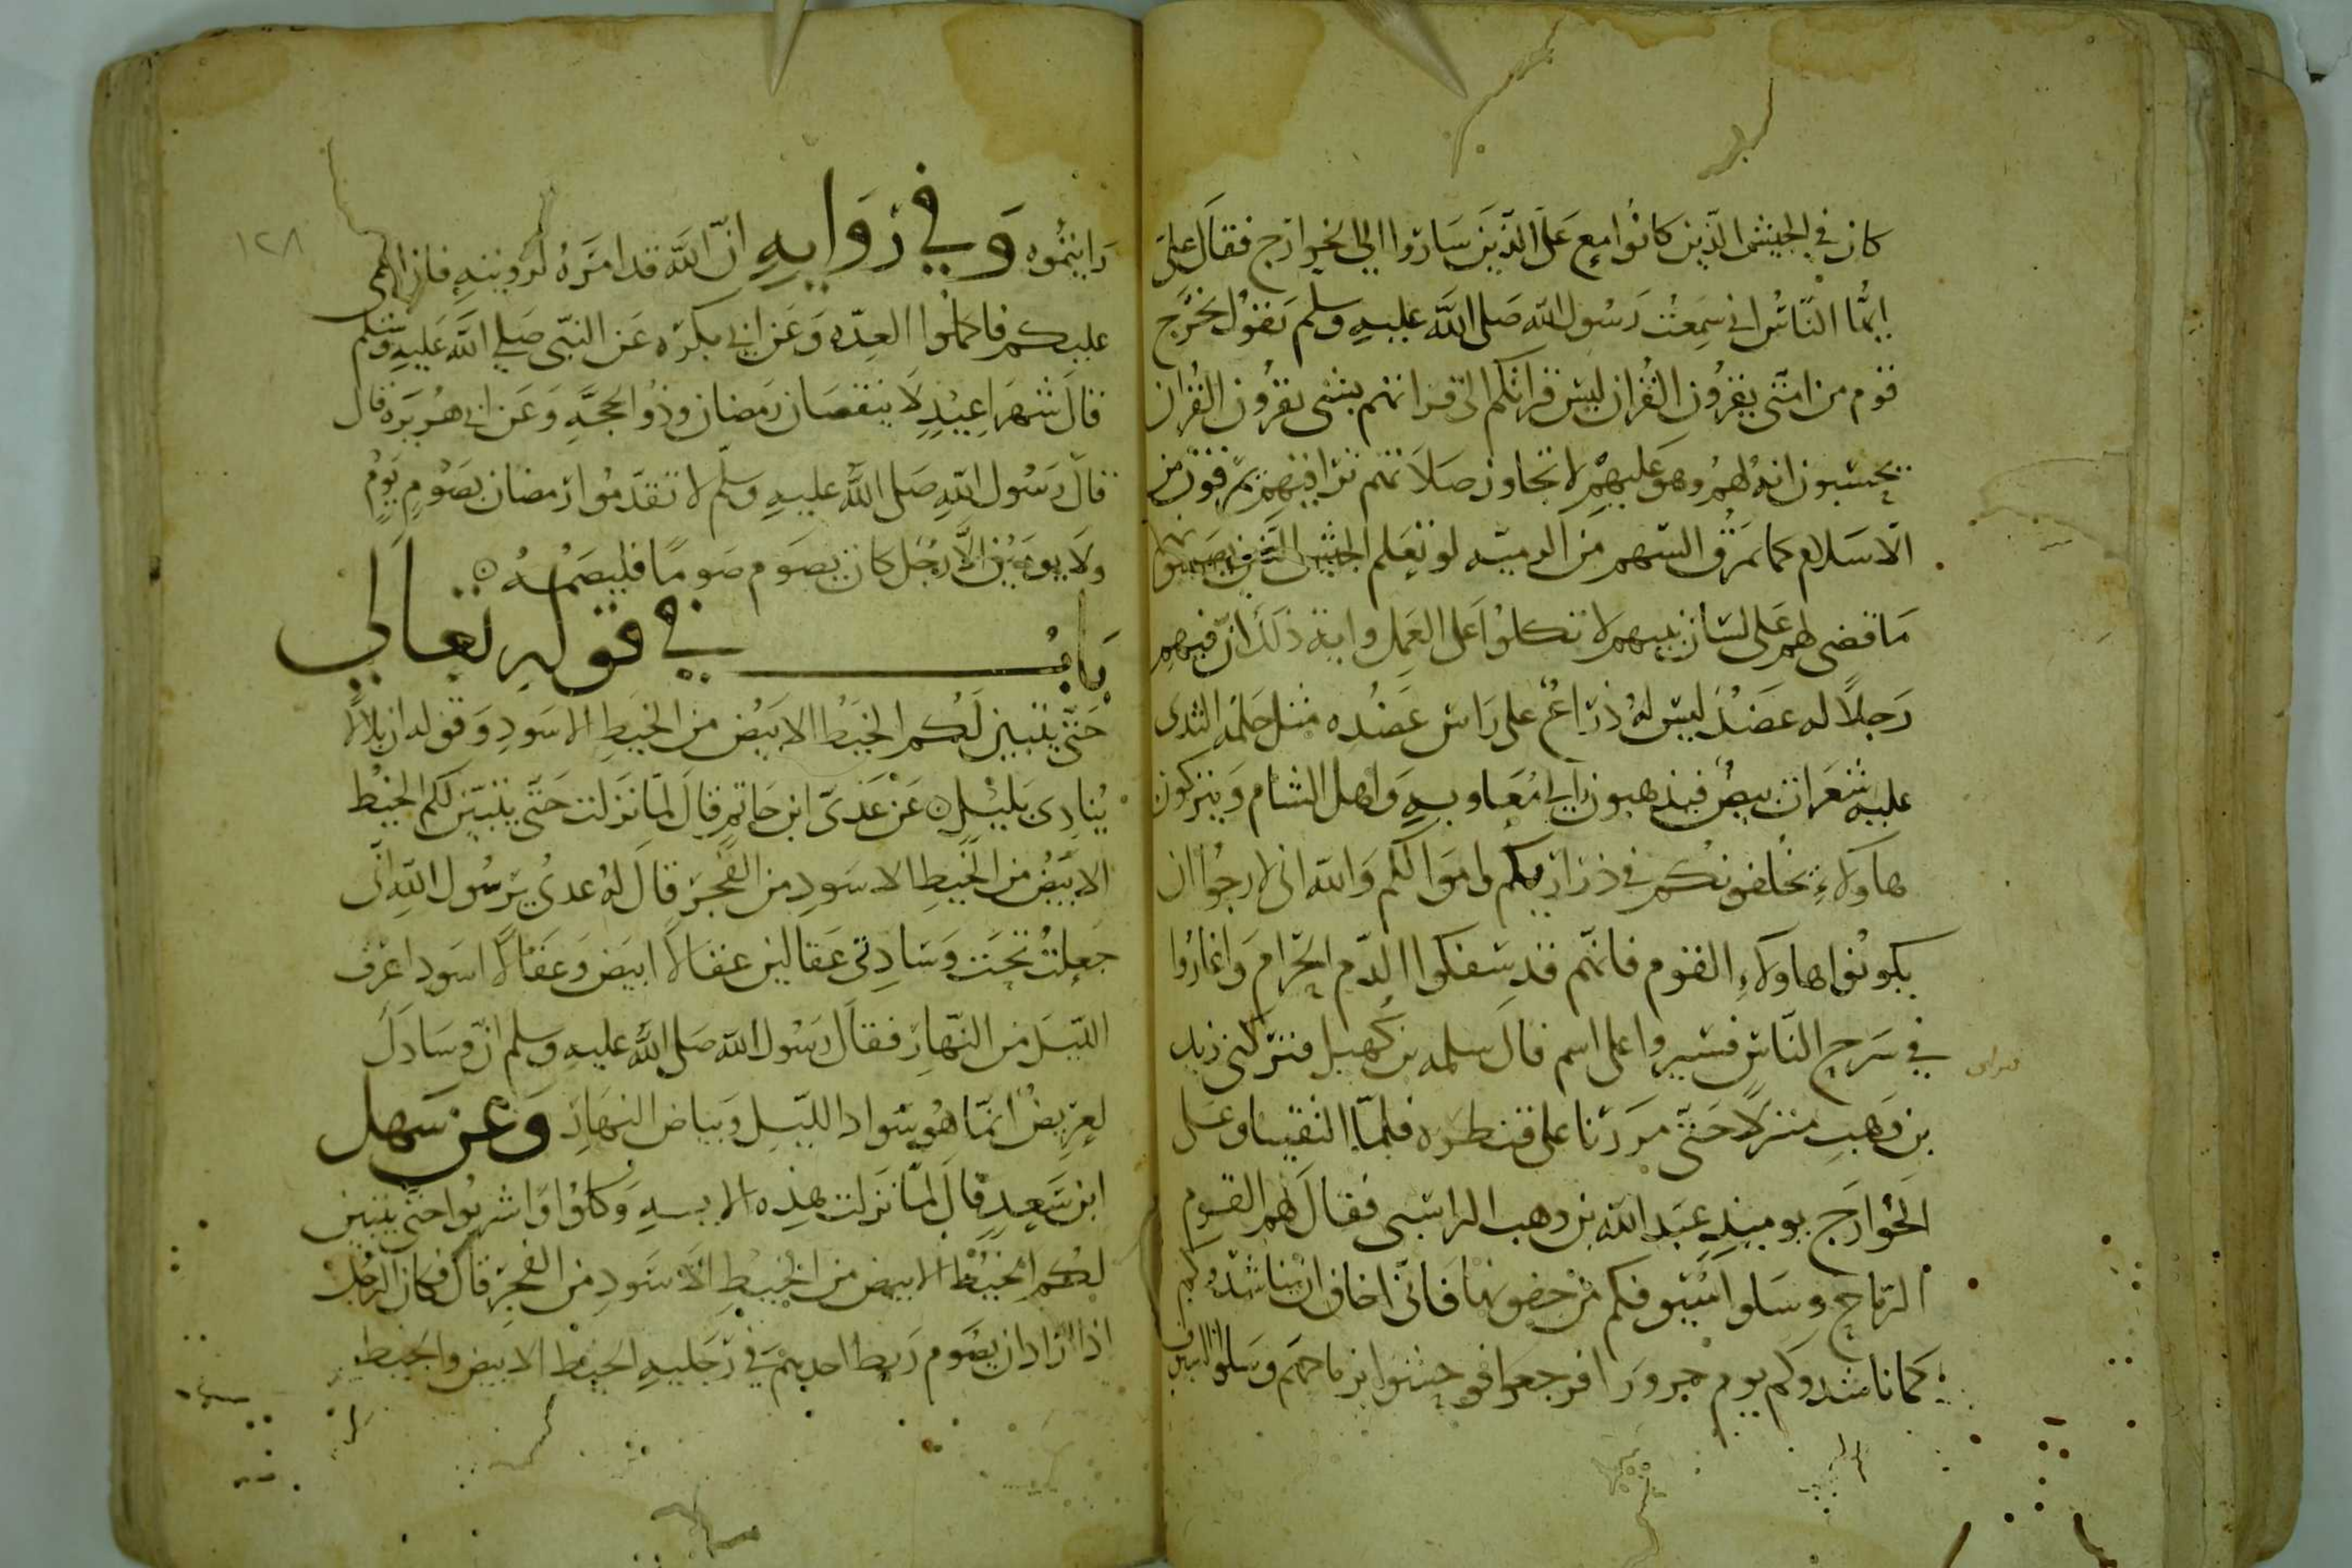 كان في الجيش الذين كانوا مع على الذين ساروا الى الخوارج فقال على
ايها الناس انى سمعت رسول الله صلى الله عليه وسلم يقول يخرج
قوم من امتى يقرون القران ليس قرانكم الى قرانهم بشى يقرون القران
يحسبون انه لهم وهو عليهم لا تجاوز صلاتهم تراقيهم يمرقون من
الاسلام كما يمرق السهم من الرميه لو تعلم الجيش الذين يصيبونهم
ما قضى لهم على لسان نبيهم لا تكلوا على العمل واية ذلك ان فيهم
رجلا له عضد ليس له ذراع على راس عضده مثل حلمة الثدى
عليه شعرات بيض فيذهبون الى معاويه واهل الشام ويتركون
هاولاء يخلفونكم في ذراريكم واموالكم والله انى لارجوا ان
يكونوا هاولاء القوم فانهم قد سفكوا الدم الحرام واغاروا
في سرح الناس فسيروا على اسم قال سلمه بن كهيل فنزلنى زيد
بن وهب منزلا حتى مررنا على قنطره فلما التقينا وعلى
الخوارج يوميذ عبد الله بن وهب الراسبى فقال لهم القوم
الرماح وسلوا سيوفكم من جفونها فانى اخاف ان يناشدوكم
كما ناشدوكم يوم حرورا فرجعوا فوحشوا برماحهم وسلوا السيوف
١٢٨
رايتموه وفي روايه ان الله قد امده لرويته فان اغمى
عليكم فاكملوا العده وعن ابي بكره عن النبى صلى الله عليه وسلم
قال شهرا عيد لا ينقصان رمضان وذو الحجه وعن ابي هريره قال
قال رسول الله صلى الله عليه وسلم لا تقدموا رمضان بصوم يوم
ولا يومين الا رجل كان يصوم صوما فليصمه
باب في قوله تعالى
حتى يتبين لكم الخيط الابيض من الخيط الاسود وقوله ان بلالا
ينادى بليل عن عدى ابن حاتم قال لما نزلت حتى يتبين لكم الخيط
الابيض من الخيط الاسود من الفجر قال له عدى يرسول الله انى
جعلت تحت وسادتى عقالين عقالا ابيض وعقالا اسود اعرف
الليل من النهار فقال رسول الله صلى الله عليه وسلم ان وسادك
لعريض انما هو سواد الليل وبياض النهار وعن سهل
ابن سعد قال لما نزلت هذه الايه وكلوا واشربوا حتى يتبين
لكم الخيط الابيض من الخيط الاسود من الفجر قال فكان الرجل
اذا اراد ان يصوم ربط احدهم في رجليه الخيط الابيض والخيط